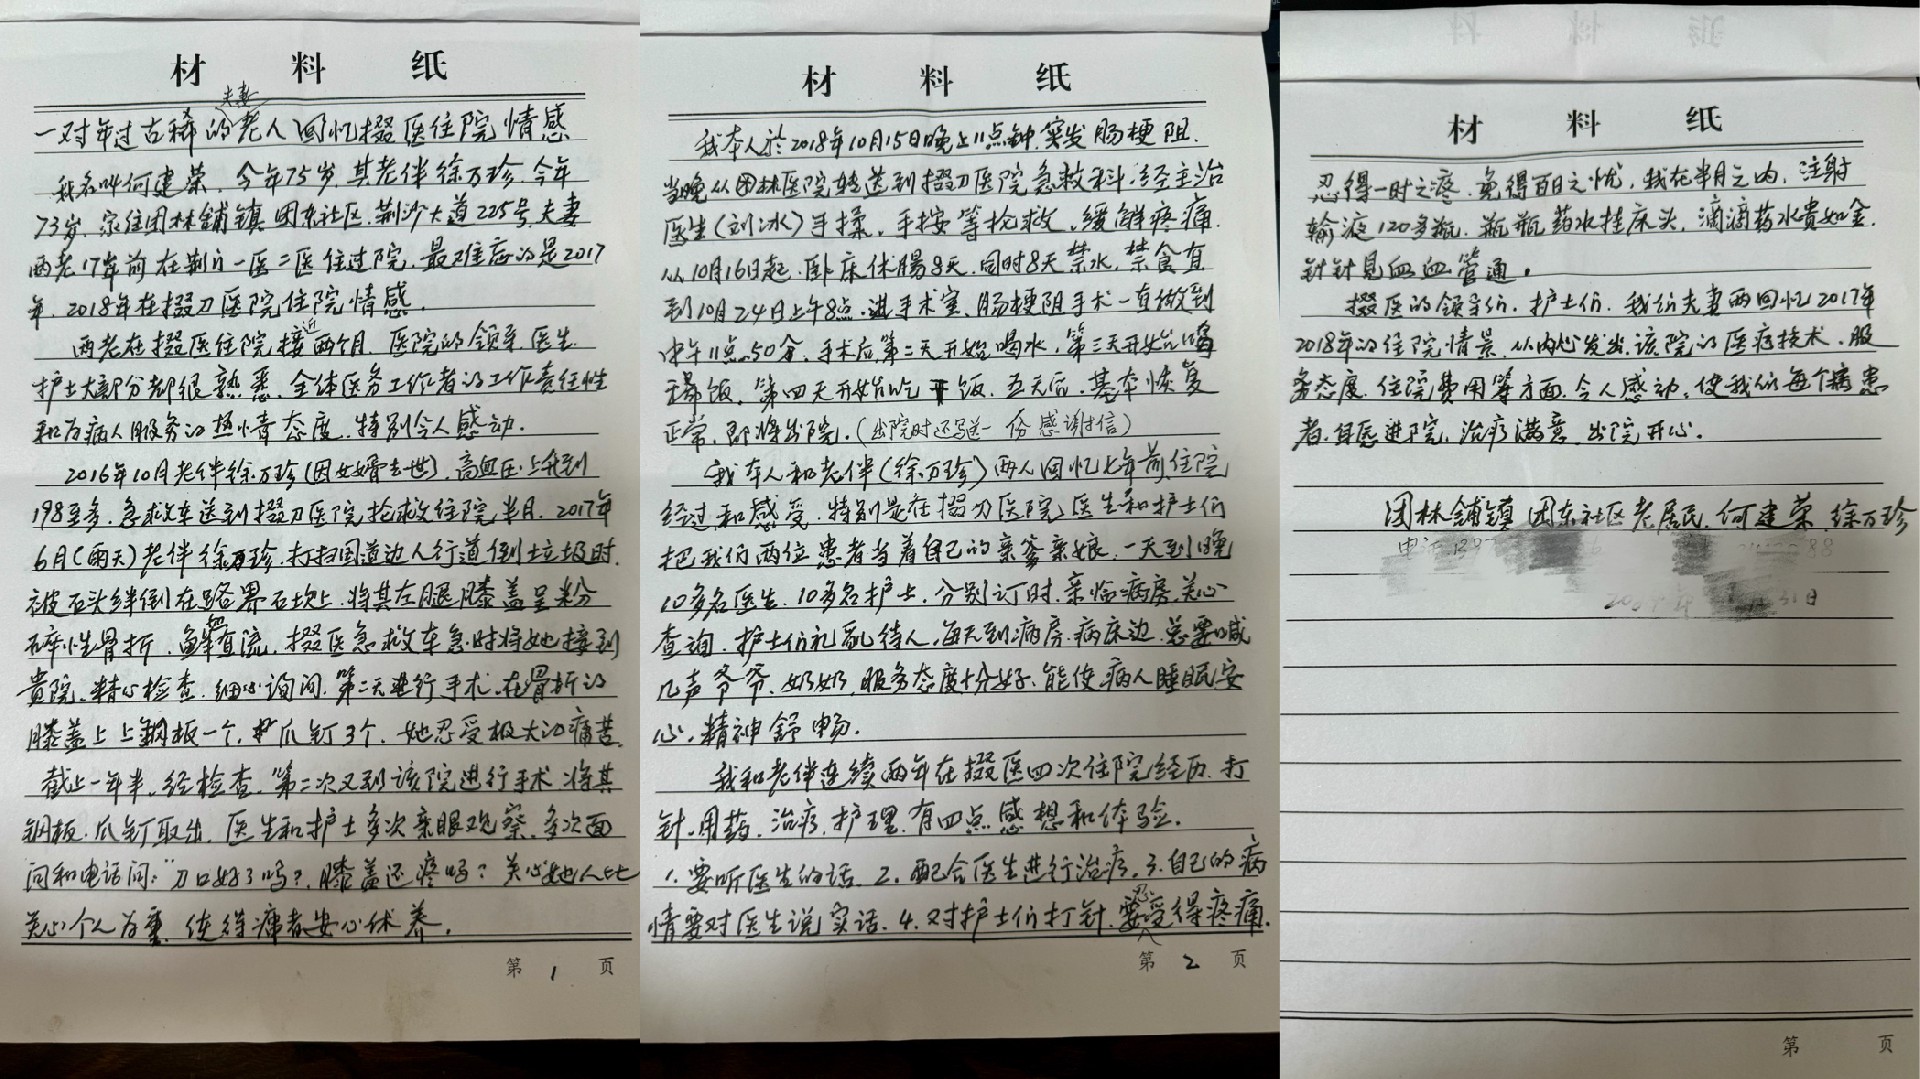 材 料 纸
夫妻
一对年过古稀的老人回忆掇医住院情感
我名叫何建荣、今年75岁、其老伴徐万珍、今年
73岁、家住团林铺镇团东社区、荆沙大道225号、夫妻
两老17年前在荆门一医二医住过院、最难忘的是2017
年、2018年在掇刀医院住院情感、
两老在掇医住院接近两个月、医院的领导、医生、
护士大部分都很熟悉、全体医务工作者的工作责任性
和为病人服务的热情态度、特别令人感动、
2016年10月老伴徐万珍(因女婿去世)、高血压上升到
198至多、急救车送到掇刀医院抢救住院半月、2017年
6月(雨天)老伴徐万珍、打扫国道边人行道倒垃圾时、
被石头绊倒在路界石坎上、将其左腿膝盖呈粉
碎性骨折、鲜血直流、掇医急救车急时将她接到
贵院、精心检查、细心询问、第二天进行手术、在骨折的
膝盖上上钢板一个、爪钉3个、她忍受极大的痛苦、
截止一年半、经检查、第二次又到该院进行手术、将其
钢板、爪钉取出、医生和护士多次亲眼观察、多次面
问和电话问:"刀口好了吗?、膝盖还疼吗?关心她人比
关心个人为重、使得患者安心休养。
第 1 页
材 料 纸
我本人於2018年10月15日晚上11点钟、突发肠梗阻、
当晚从团林医院转送到掇刀医院急救科、经主治
医生(刘冰)手揉、手按等抢救、缓解疼痛、
从10月16日起、卧床休肠8天、同时8天禁水、禁食直
到10月24日上午8点、进手术室、肠梗阻手术一直做到
中午11点50分、手术后第二天开始喝水、第三天开始喝
、第四天开始吃干饭、五天后、基本恢复
正常、即将出院、(出院时还写送一份感谢信)
我本人和老伴(徐万珍)两人回忆七年前住院
经过和感受、特别是在掇刀医院、医生和护士们
把我们两位患者当着自己的亲爹亲娘、一天到晚
10多名医生、10多名护士、分别订时、亲临病房、关心
查询、护士们礼貌待人、每天到病房、病床边、总要喊
几声爷爷、奶奶、服务态度十分好、能使病人睡眠安
心、精神舒畅、
我和老伴连续两年在掇医四次住院经历、打
针、用药、治疗、护理、有四点感想和体验、
1.要听医生的话、2.配合医生进行治疗、3.自己的病
情要对医生说实话、4.对护士们打针、要忍受得疼痛、
第 2 页
材 料 纸
忍得一时之疼、免得百日之忧、我在半月之内、注射
输液120多瓶、瓶瓶药水挂床头、滴滴药水贵如金、
针针见血血管通。
掇医的领导们、护士们、我们夫妻两回忆2017年
2018年的住院情景、从内心发出、该院的医疗技术、服
务态度、住院费用等方面、令人感动、使我们每个病患
者、自愿进院、治疗满意、出院开心。
团林铺镇团东社区老居民、何建荣、徐万珍
31日
第 页